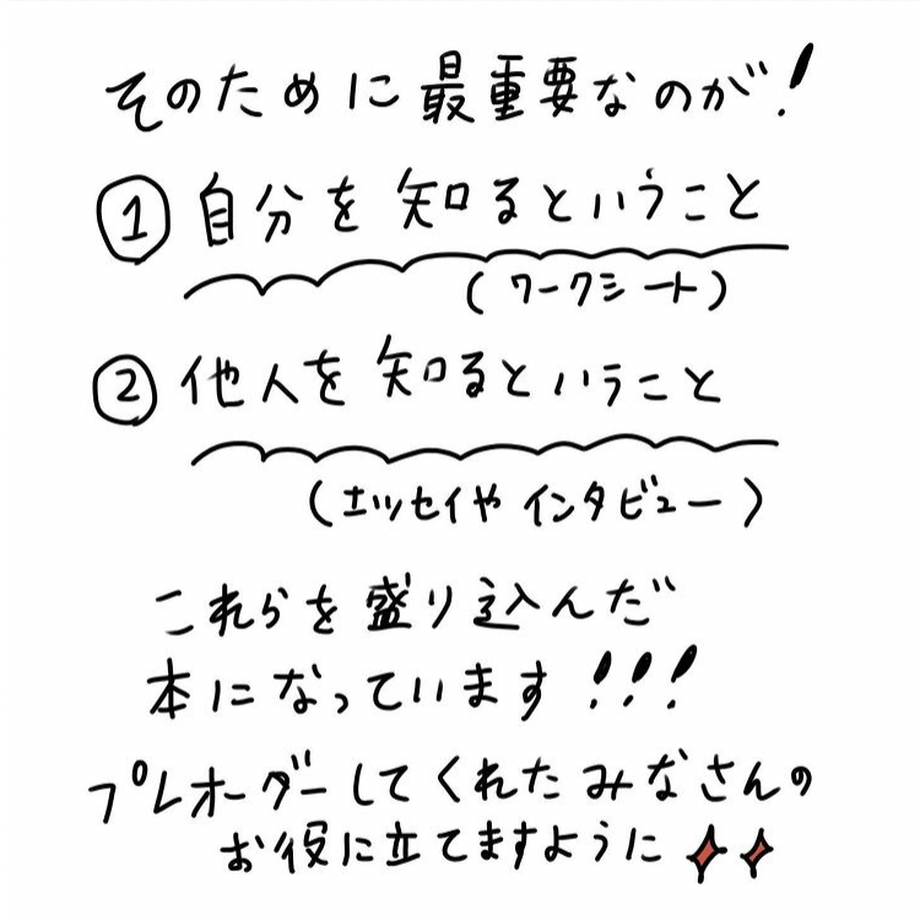 そのために最重要なのが!
① 自分を知るということ
(ワークシート)
② 他人を知るということ
(エッセイやインタビュー)
これらを盛り込んだ
本になっています!!!
プレオーダーしてくれたみなさんの
お役に立てますように